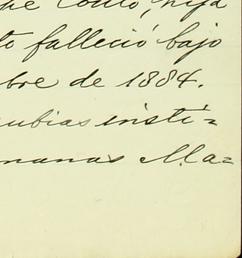 Couto, hija
to falleció bajo
bre de 1884.
ubias insti=
manas Ma=